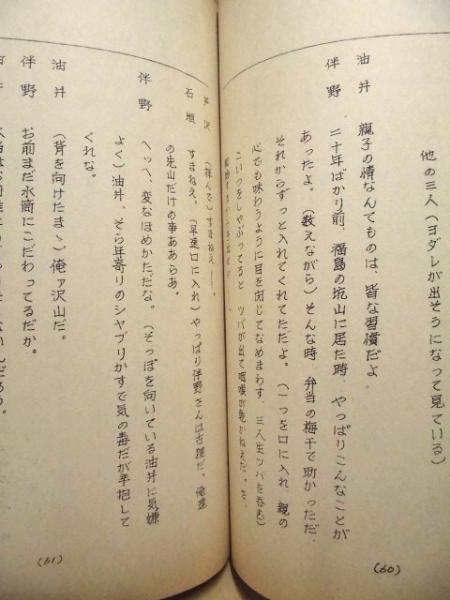 他の三人(ヨダレが出そうになって見ている)
油井 親子の情なんてものは、皆な習慣だよ
伴野 二十年ばかり前、福島の坑山に居た時 やっぱりこんなことが
あったよ。(数えながら)そんな時 弁当の梅干で助かっただ、
それからずっと入れてくれてただよ。(一つを口に入れ 親の
心でも味わうように目を閉じてなめまわす、三人生ツバを呑む)
こいつをしゃぶってると ツバが出て咽喉が乾かねえだ。さ、
(60)
すまねえ――
石垣 すまねえ、(早速口に入れ)やっぱり伴野さんは古顔だ、俺達
の先山だけの事あるらあ。
伴野 ヘッヘ、変なほめかただな。(そっぽを向いている油井に気嫌
よく)油井、そら年寄りのシャブリかすで気の毒だが辛抱して
くれな。
油井 (背を向けたまゝ)俺ァ沢山だ。
伴野 お前まだ水筒にこだわってるだか。
(61)